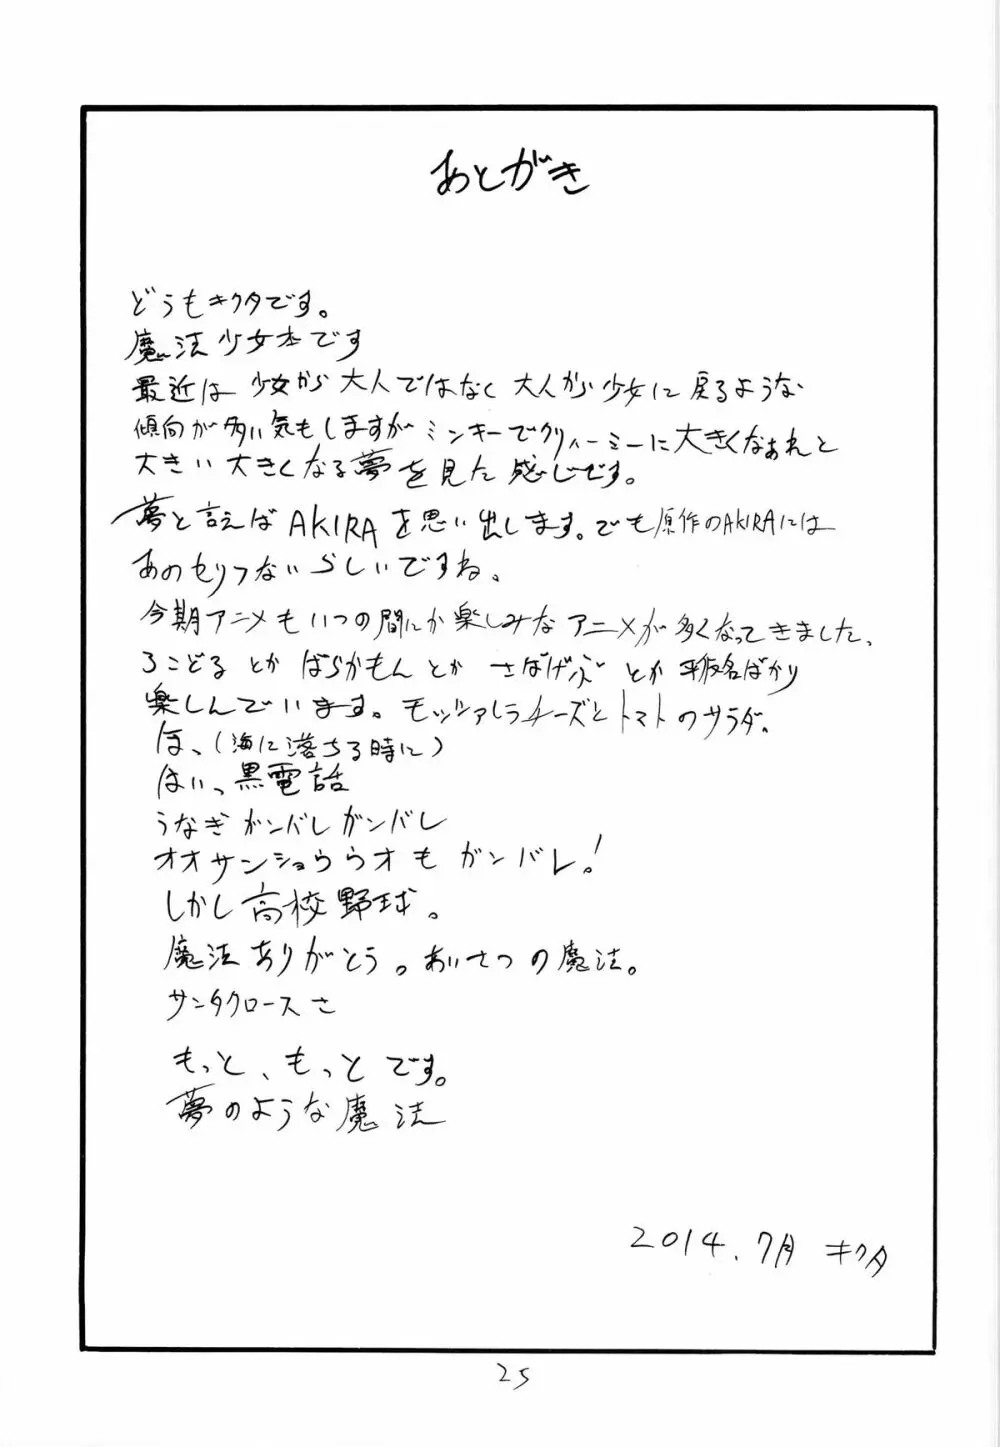 あとがき
どうもキクタです。
魔法少女本です
最近は少女から大人ではなく大人から少女に戻るような
傾向が多い気もしますがミンキーでクリィーミーに大きくなぁれと
大きい大きくなる夢を見た感じです。
夢と言えばAKIRAを思い出します。でも原作のAKIRAには
あのセリフないらしいですね。
今期アニメもいつの間にか楽しみなアニメが多くなってきました、
ろこどるとかばらかもんとかさばげぶとか平仮名ばかり
楽しんでいます。モッツァレラチーズとトマトのサラダ。
ほ、(海に落ちる時に)
はいっ黒電話
うなぎガンバレガンバレ
オオサンショウウオもガンバレ!
しかし高校野球。
魔法ありがとう。あいさつの魔法。
サンタクロースさ
もっと、もっとです。
夢のような魔法
2014.7月 キクタ
25